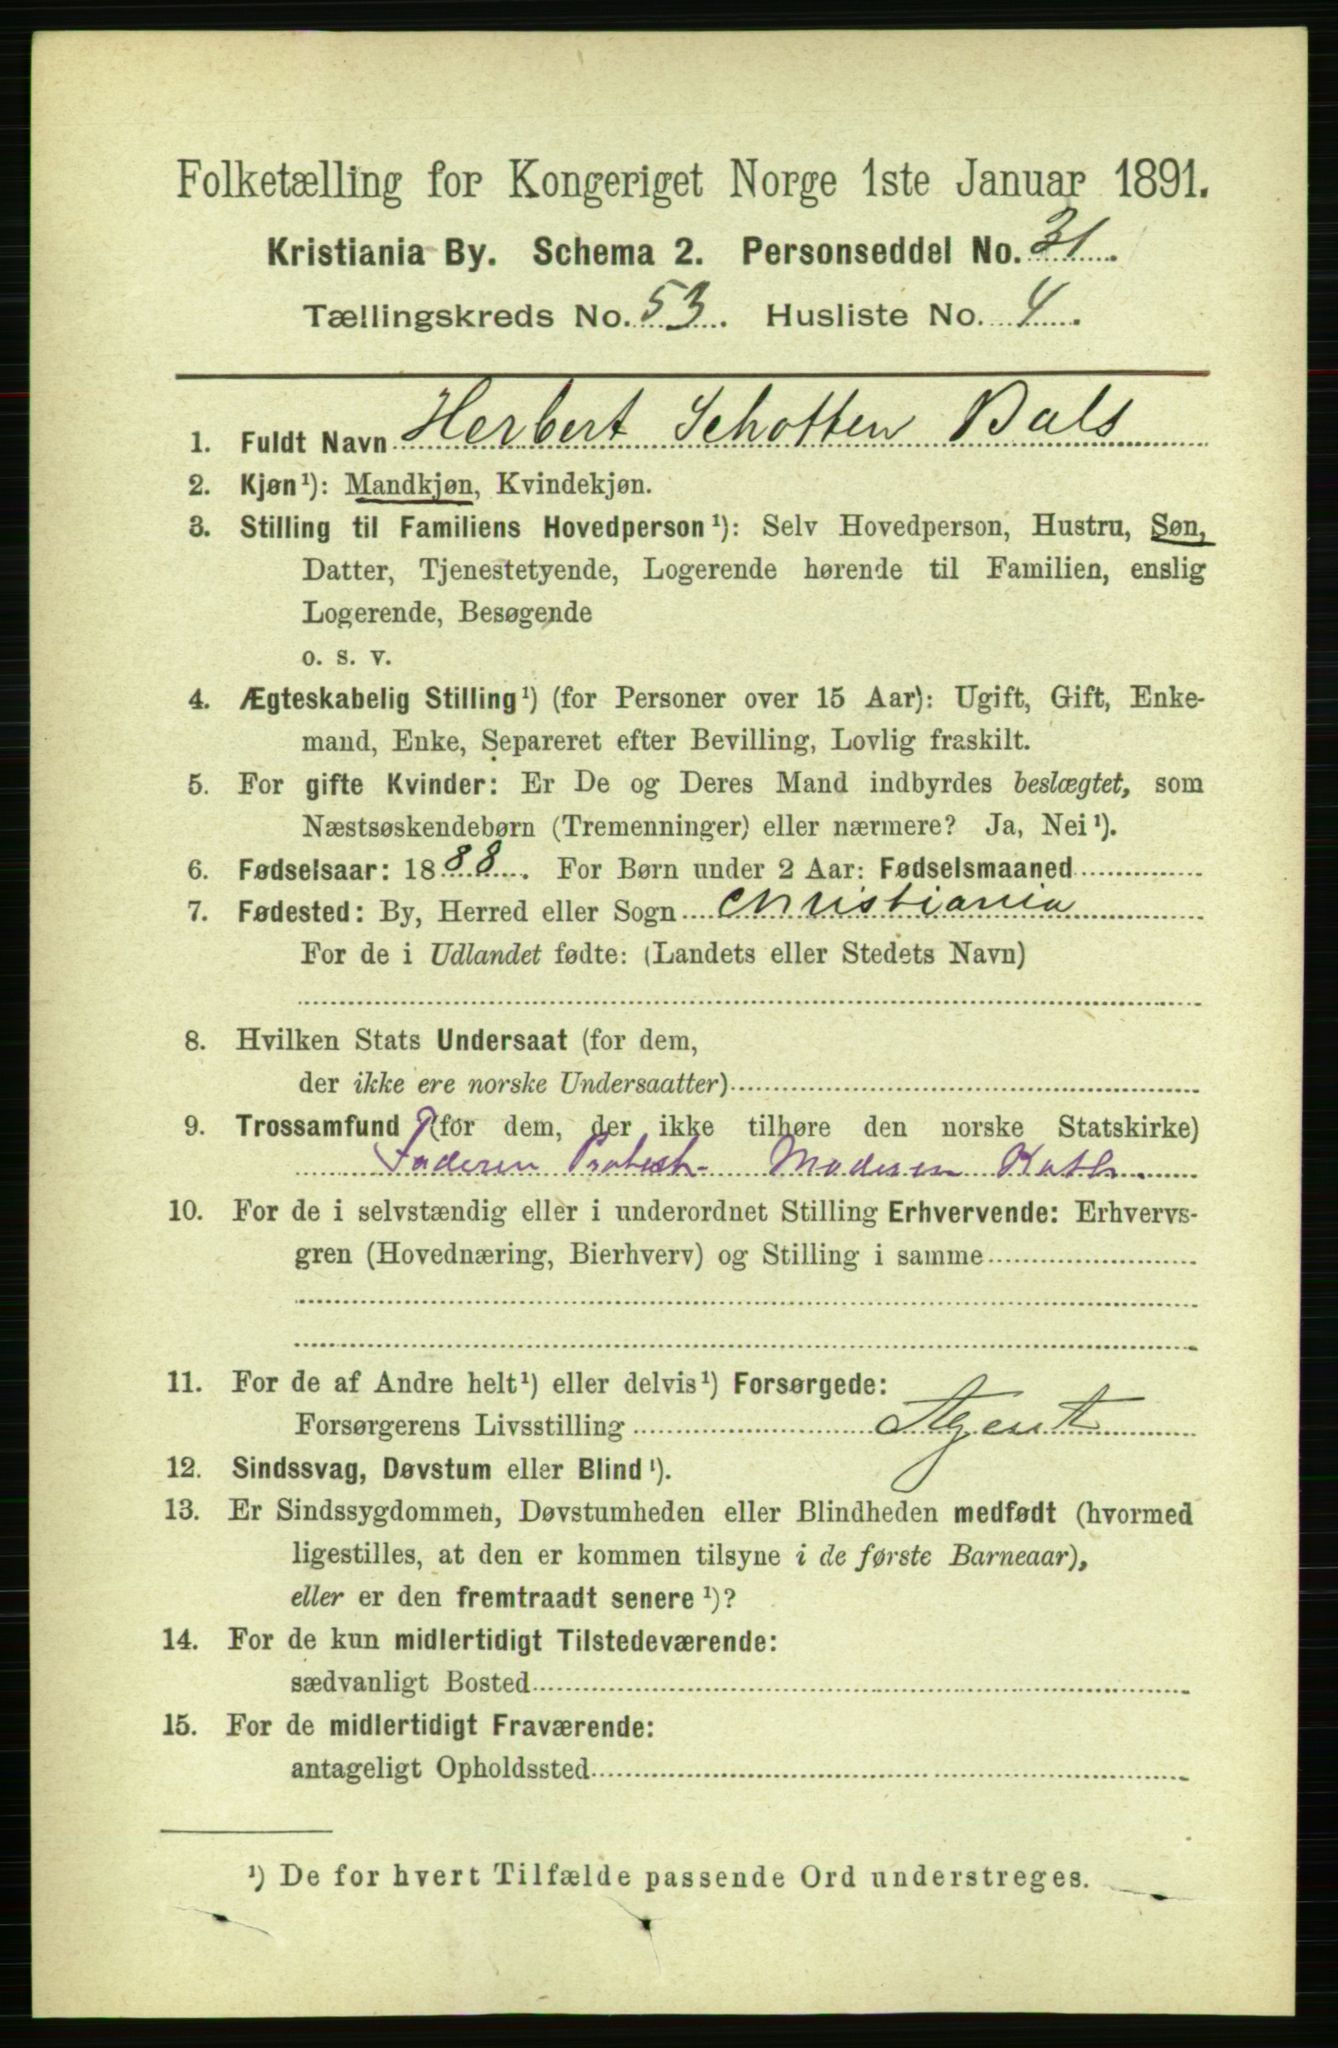 Folketælling for Kongeriget Norge 1ste Januar 1891.
Kristiania By. Schema 2. Personseddel No. 31.
Tællingskreds No. 53. Husliste No. 4.
1. Fuldt Navn Herbert Schotten Bals
2. Kjøn¹): Mandkjøn, Kvindekjøn.
3. Stilling til Familiens Hovedperson¹): Selv Hovedperson, Hustru, Søn,
Datter, Tjenestetyende, Logerende hørende til Familien, enslig
Logerende, Besøgende
o. s. v.
4. Ægteskabelig Stilling¹) (for Personer over 15 Aar): Ugift, Gift, Enke-
mand, Enke, Separeret efter Bevilling, Lovlig fraskilt.
5. For gifte Kvinder: Er De og Deres Mand indbyrdes beslægtet, som
Næstsøskendebørn (Tremenninger) eller nærmere? Ja, Nei¹).
6. Fødselsaar: 1888. For Børn under 2 Aar: Fødselsmaaned
7. Fødested: By, Herred eller Sogn Christiania
For de i Udlandet fødte: (Landets eller Stedets Navn)
8. Hvilken Stats Undersaat (for dem,
der ikke ere norske Undersaatter)
9. Trossamfund ? (for dem, der ikke tilhøre den norske Statskirke)
Faderen Protest. Moderen Kath.
10. For de i selvstændig eller i underordnet Stilling Erhvervende: Erhvervs-
gren (Hovednæring, Bierhverv) og Stilling i samme
11. For de af Andre helt¹) eller delvis¹) Forsørgede:
Forsørgerens Livsstilling Agent
12. Sindssvag, Døvstum eller Blind¹).
13. Er Sindssygdommen, Døvstumheden eller Blindheden medfødt (hvormed
ligestilles, at den er kommen tilsyne i de første Barneaar),
eller er den fremtraadt senere¹)?
14. For de kun midlertidigt Tilstedeværende:
sædvanligt Bosted
15. For de midlertidigt Fraværende:
antageligt Opholdssted
¹) De for hvert Tilfælde passende Ord understreges.